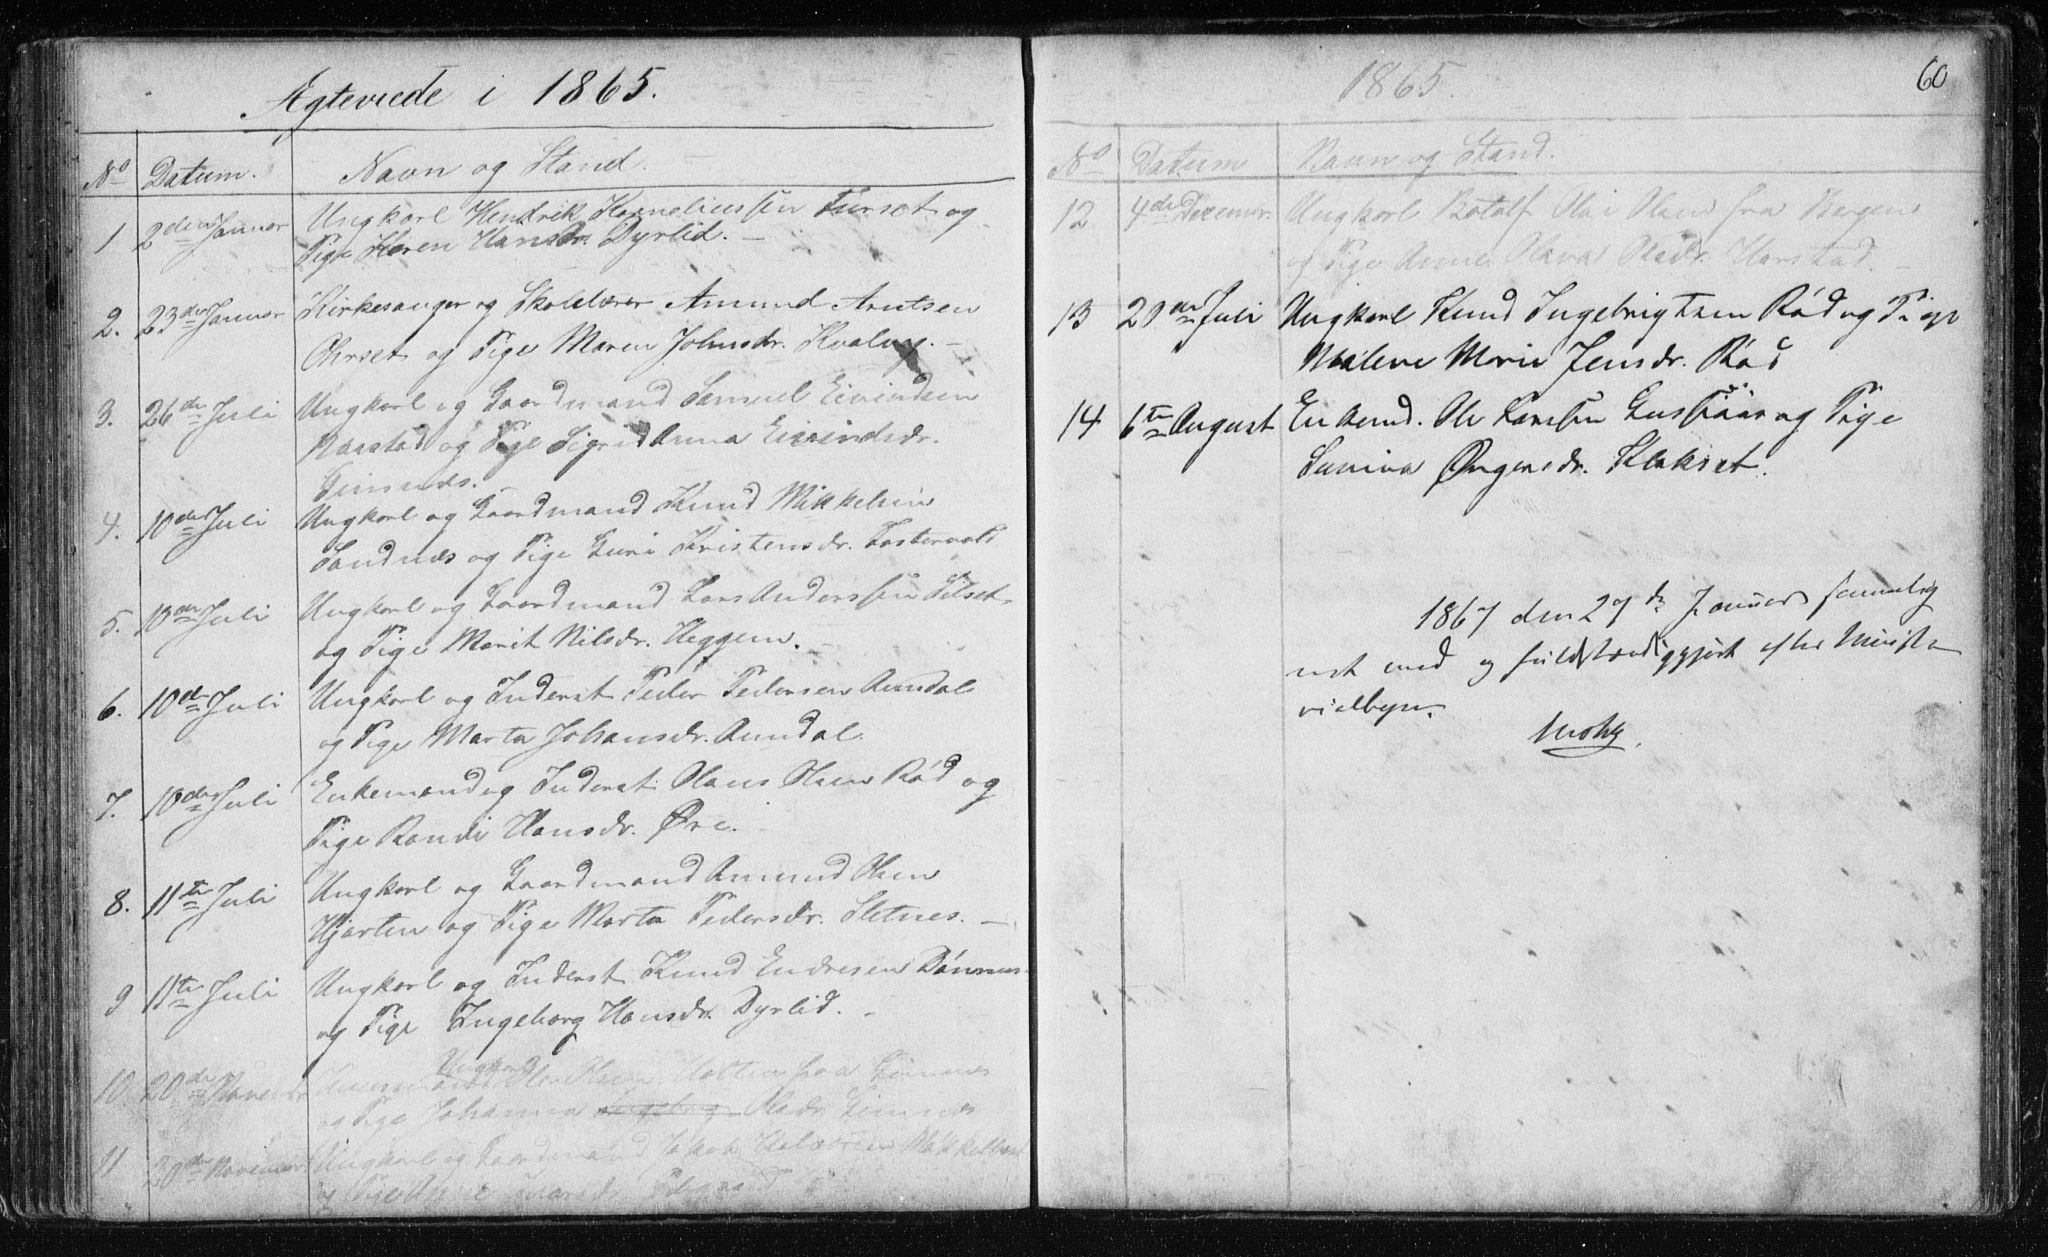 Ægteviede i 1865.
No Datum. Navn og Stand.
1 2den Januar Ungkarl Hendrik Korneliussen Furset og
Pige Karen Hansdr. Dyrlid. —
2. 23de Januar Kirkesanger og Skolelærer Amund Arntsen
Ohrset og Pige Maren Johnsdr. Kvalvag. —
3. 26de Juli Ungkarl og Gaardmand Samuel Eivindsen
og Pige Sigrid Anna Eivindsdr.
Gimnæs.
4. 10de Juli Ungkarl og Gaardmand Knud Mikkelsen
Sandnæs og Pige Guri Kristensdr. Fostervold
5. 10de Juli Ungkarl og Gaardmand Lars Anderssen Silset
og Pige Marit Nilsdr. Heggem. —
6. 10de Juli Ungkarl og Inderst Peder Pedersen Aundal
og Pige Marta Johansdr. Aundal.
7. 10de Juli Enkemand og Inderst Olaus Olsen Rød og
Pige Randi Hansdr. Øre. —
8. 11te Juli Ungkarl og Gaardmand Amund Olsen
Hjorten og Pige Marta Pedersdr. Sletnes. —
9 11te Juli Ungkarl og Inderst Knud Endresen Bønnæs
og Pige Ingeborg Hansdr. Dyrlid. —
10. 20de Novembr. Ungkarl
Ole Olsen fra Gimnæs
og Pige Johanna Ingebrig Olsdr. Gimnæs
11 20de November Ungkarl og Gaardmand Jakob Halvorsen
og Pige Anne
1865.
60
No Datum Navn og Stand.
12. 4de Decemer. Ungkarl Botolf Olai Olsen fra Bergen
og Pige Anne Olava Olsdr. Harstad. —
13 20de Juli Ungkarl Knud Ingebrigtsen Rød og Pige
Malene Marie Jensdr. Rød
14 6te August Enkemd. Ole Larssen og Pige
Lavina Ørgensdr. Slakset.
1867 den 27de Januar
og fuldstændiggjort efter Ministe
rialbogen.